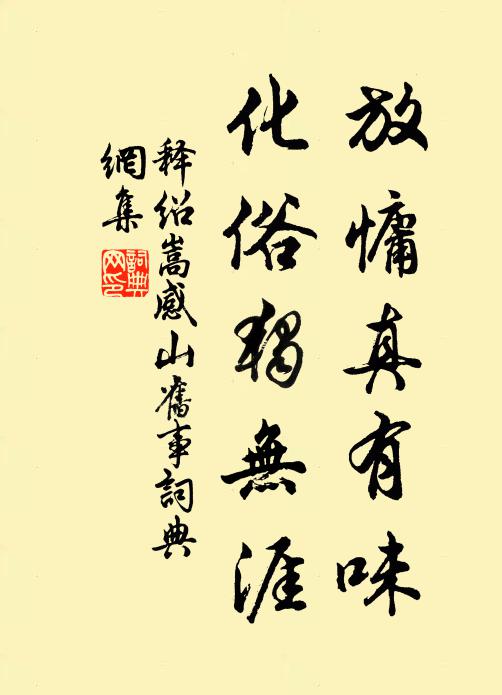 放慵真有味
化俗獨無涯
释绍嵩感山舊事詞典
網集
詞典
网印